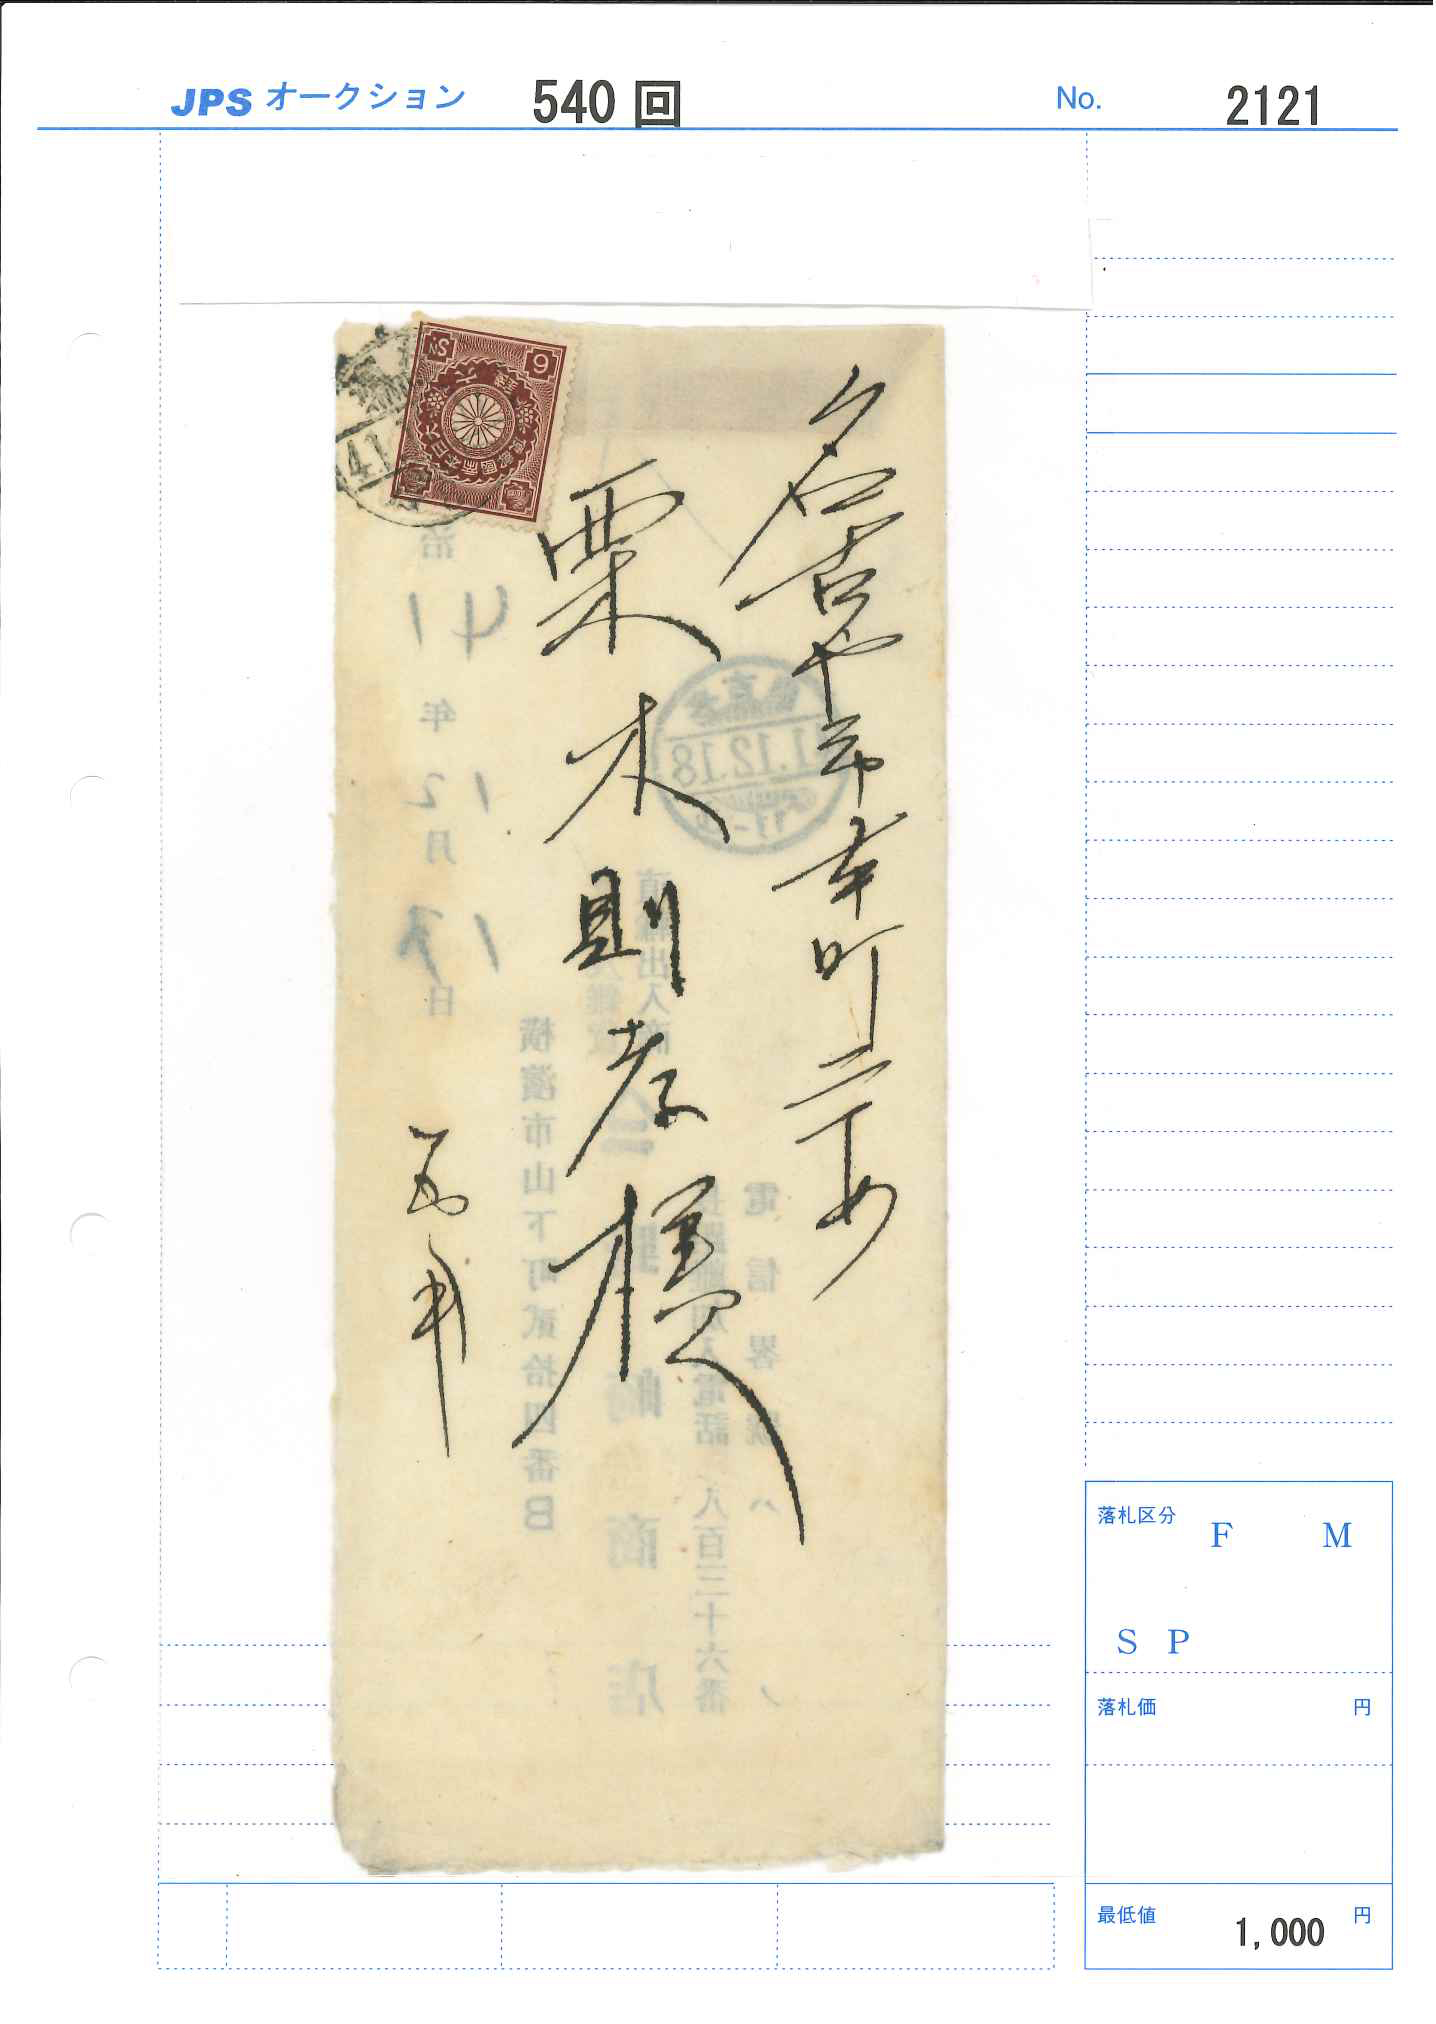 JPS オークション 540 回 No. 2121
名古や市本町二丁め
栗木則孝様
6 SN
41
1.12.18
治 41 年 12 月 17 日
横濱市山下町貳拾四番B
商店
八百三十六番
電信畧號 ハ
落札区分 F M
S P
落札価 円
最低値 1,000 円